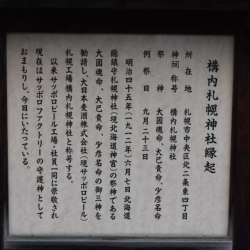 構内札幌神社縁起
所在地　札幌市中央区北二条東四丁目
神祠称号　構内札幌神社
祭神　大国魂命、大己貴命、少彦名命
例祭日　九月二十三日
明治四十五年（一九一二年）六月七日北海道
総鎮守札幌神社（現北海道神宮）の祭神である
大国魂命、大己貴命、少彦名命の御三神を
勧請し、大日本麦酒株式会社（現サッポロビール）
札幌工場構内札幌神社と称号する。
以来サッポロビール工場・社員一同に崇敬され
現在はサッポロファクトリーの守護神として
おまもりし、今日にいたっている。